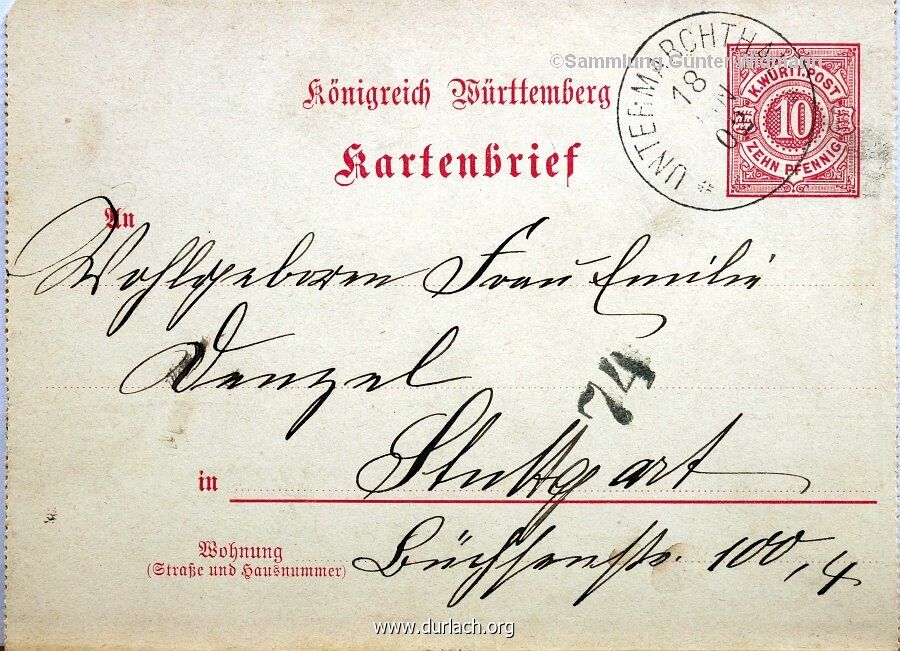 ©Sammlung Günter
UNTERMARCHTHAL
18
09
K.WÜRTT.POST
10
ZEHN PFENNIG
Königreich Württemberg
Kartenbrief
An
Wohlgeboren Frau Emilie
Denzel
74
in Stuttgart
Wohnung
(Straße und Hausnummer)
Büchsenstr. 100, 4
www.durlach.org